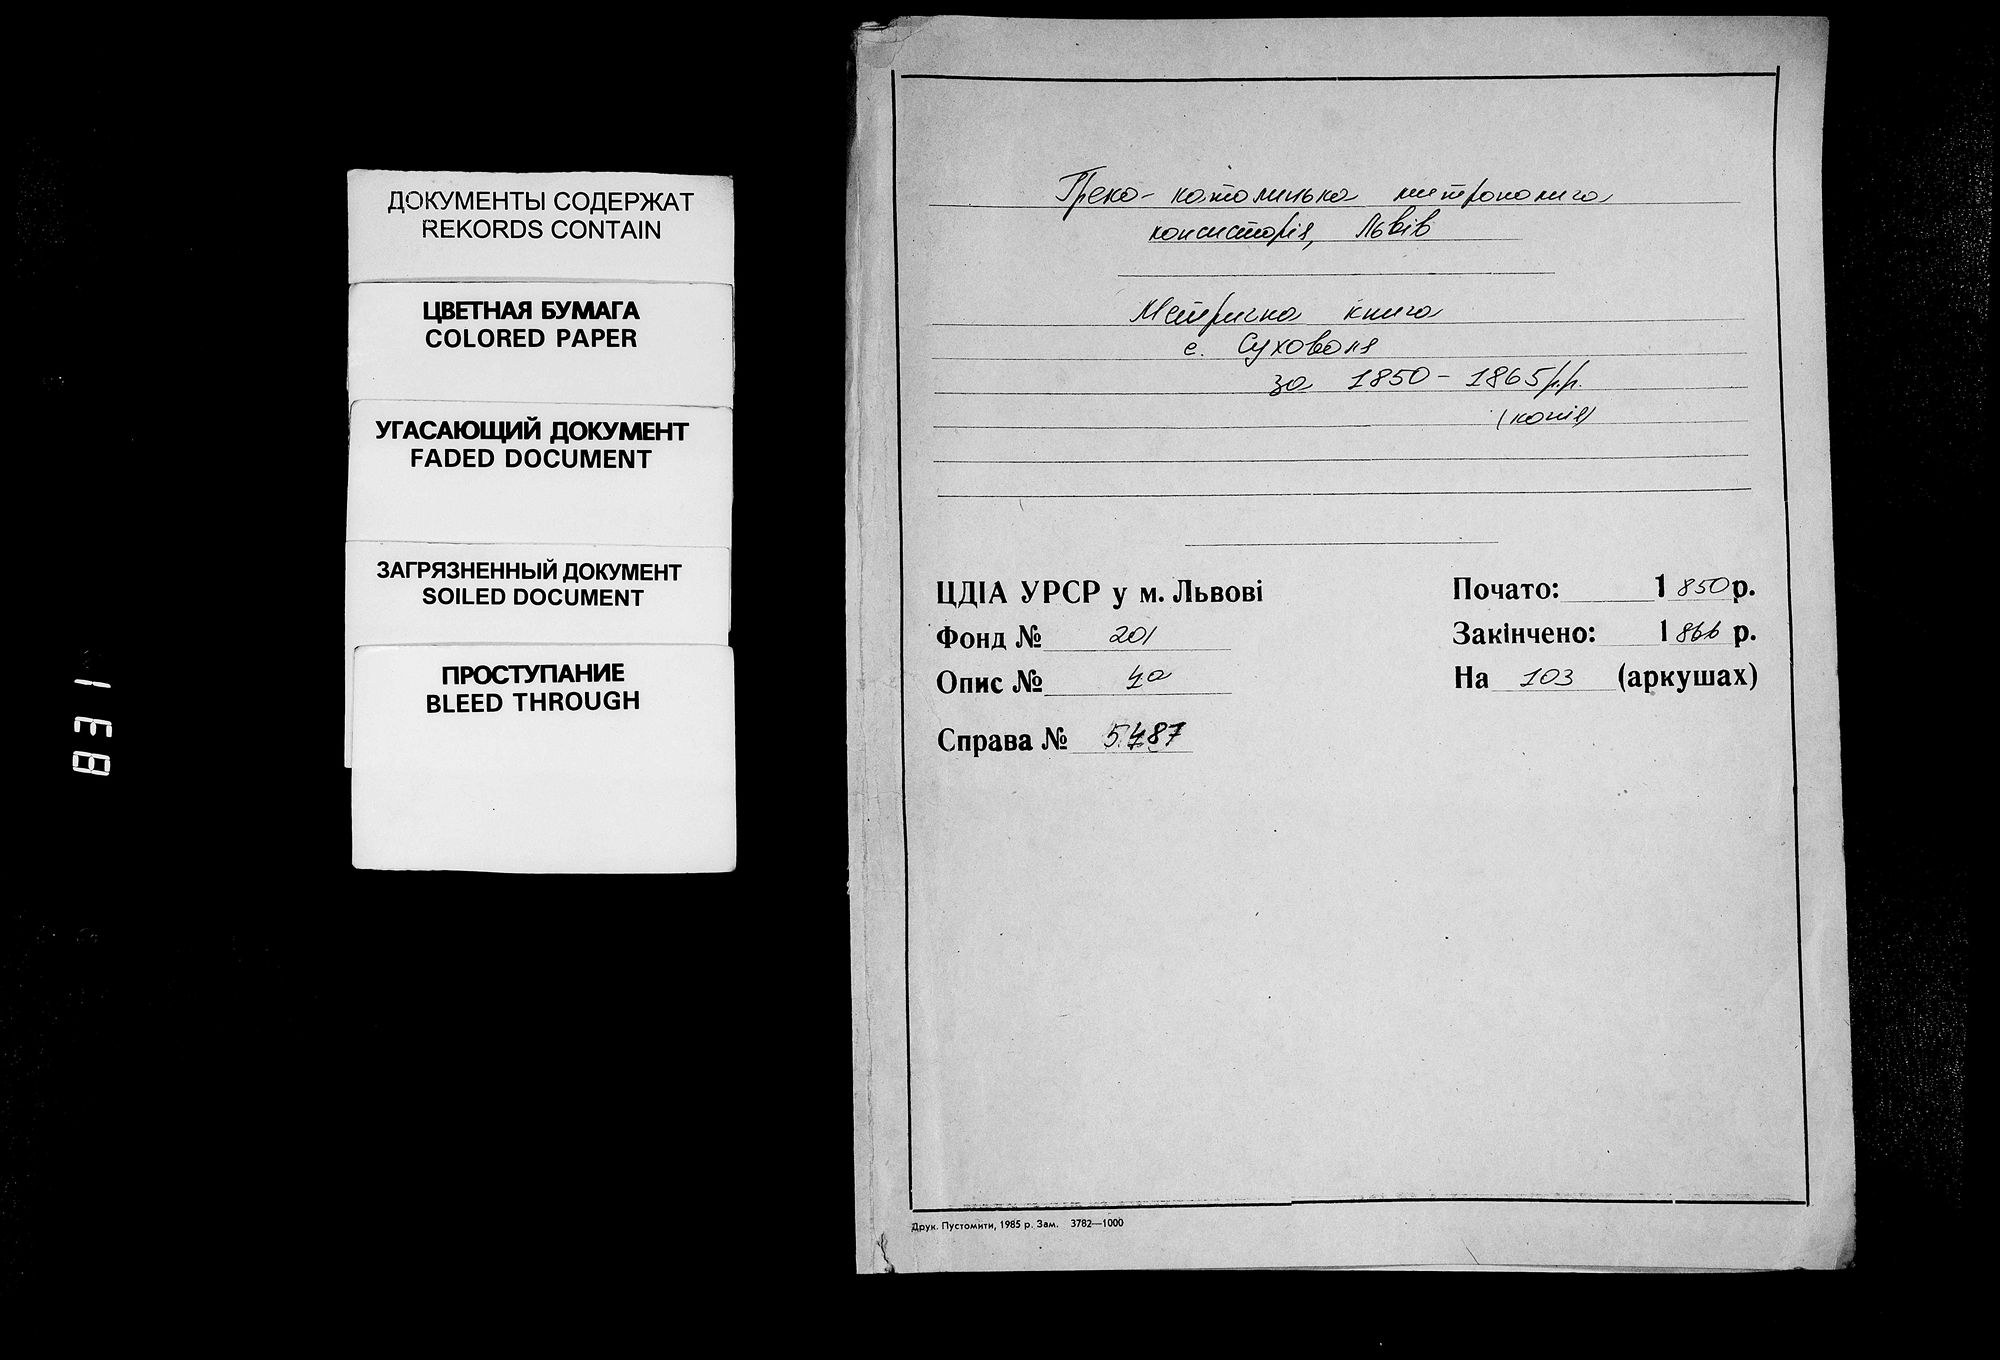 ДОКУМЕНТЫ СОДЕРЖАТ
REKORDS CONTAIN
ЦВЕТНАЯ БУМАГА
COLORED PAPER
УГАСАЮЩИЙ ДОКУМЕНТ
FADED DOCUMENT
ЗАГРЯЗНЕННЫЙ ДОКУМЕНТ
SOILED DOCUMENT
ПРОСТУПАНИЕ
BLEED THROUGH
1138
Греко-католицька митрополича
консисторія, Львів
Метрична книга
с. Суховоля
за 1850-1865 р.р.
(копія)
ЦДІА УРСР у м. Львові
Фонд № 201
Опис № 4а
Справа № 5487
Почато: 1850 р.
Закінчено: 1866 р.
На 103 (аркушах)
Друк. Пустомити, 1985 р. Зам. 3782—1000